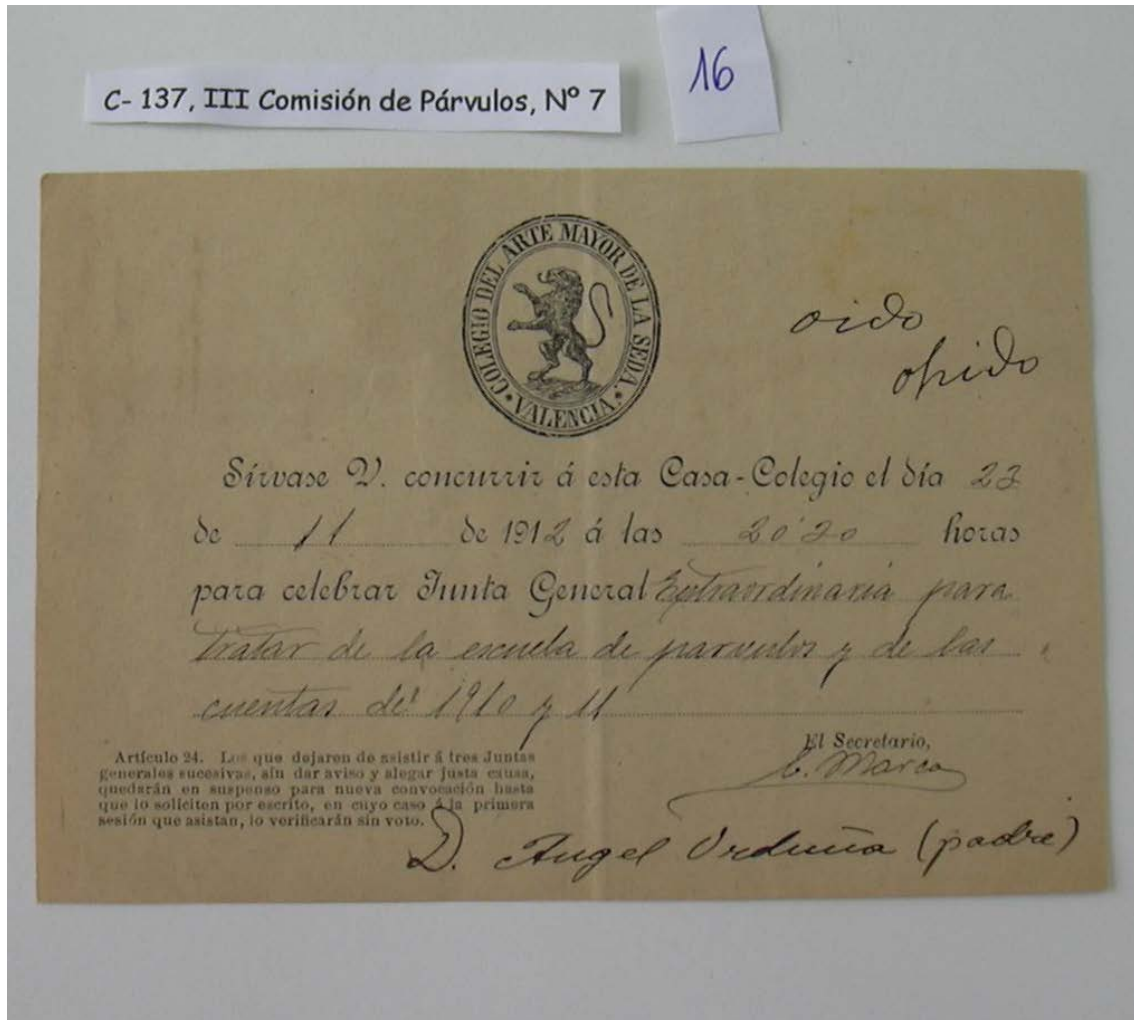 C- 137, III Comisión de Párvulos, Nº 7
16
COLEGIO DEL ARTE MAYOR DE LA SEDA.
VALENCIA.
oido
Sírvase V. concurrir á esta Casa-Colegio el día 23
de 11 de 1912 á las horas
para celebrar Junta General Extraordinaria para
tratar de la escuela de parvulos y de las
cuentas de 1910 y 11
Artículo 24. Los que dejaren de asistir á tres Juntas
generales sucesivas, sin dar aviso y alegar justa causa,
quedarán en suspenso para nueva convocación hasta
que lo soliciten por escrito, en cuyo caso á la primera
sesión que asistan, lo verificarán sin voto.
El Secretario,
Marco
D. Angel Orduña (padre)